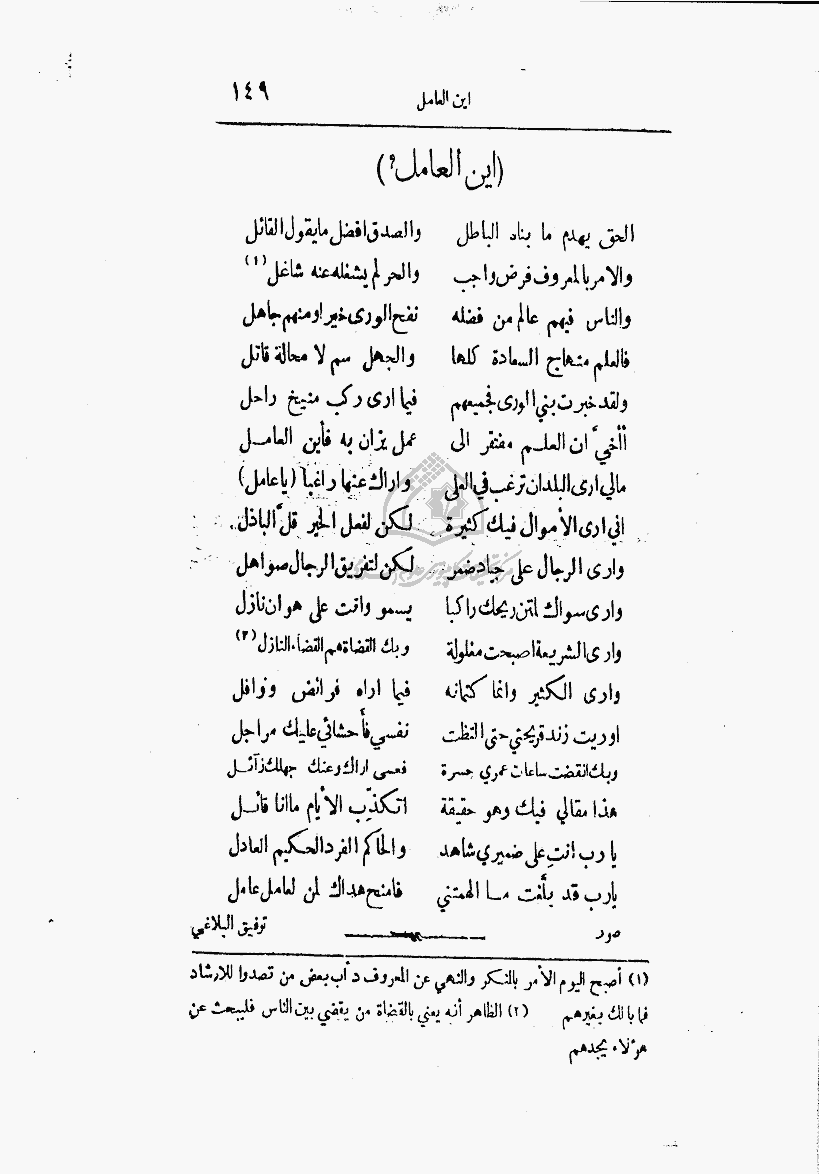 ١٤٩ اين العامل
(اين العامل؟)
الحق يهدم ما بناه الباطل والصدق افضل مايقول القائل
والامر بالمعروف فرض واجب والحر لم يشغله عنه شاغل (١)
والناس فيهم عالم من فضله نفح الورى خيرا ومنهم جاهل
فالعلم منهاج السعادة كلها والجهل سم لا محالة قاتل
ولقد خبرت بني الورى فجميعهم فيما ارى ركب منيخ راحل
أأخيَّ ان العلم مفتقر الى عمل يزان به فأين العامل
مالي ارى البلدان ترغب في العلى واراك عنها راغباً (ياعامل)
اني ارى الأموال فيك كثيرة لكن لفعل الخير قلَّ الباذل
وارى الرجال على جياد ضمر لكن لتفريق الرجال صواهل
وارى سواك لمتن ريحك راكبا يسمو وانت على هوان نازل
وارى الشريعة اصبحت مغلولة وبك القضاة هم القضاء النازل (٢)
وارى الكثير وانما كتمانه فيما اراه فرائض ونوافل
اوريت زند قريحتي حتى التظت نفسي فأحشائي عليك مراجل
وبك انقضت ساعات عمري حسرة فعسى اراك وعنك جهلك زآئل
هذا مقالي فيك وهو حقيقة اتكذّب الأيام ماانا قائل
يا رب انت على ضميري شاهد والحاكم الفرد الحكيم العادل
يارب قد بلَّغت ما الهمتني فامنح هداك لمن لعامل عامل
صور توفيق البلاغي
(١) أصبح اليوم الأمر بالمنكر والنهي عن المعروف دأب بعض من تصدوا للارشاد
فما بالك بغيرهم (٢) الظاهر أنه يعني بالقضاة من يقضي بين الناس فليبحث عن
هؤلاء يجدهم